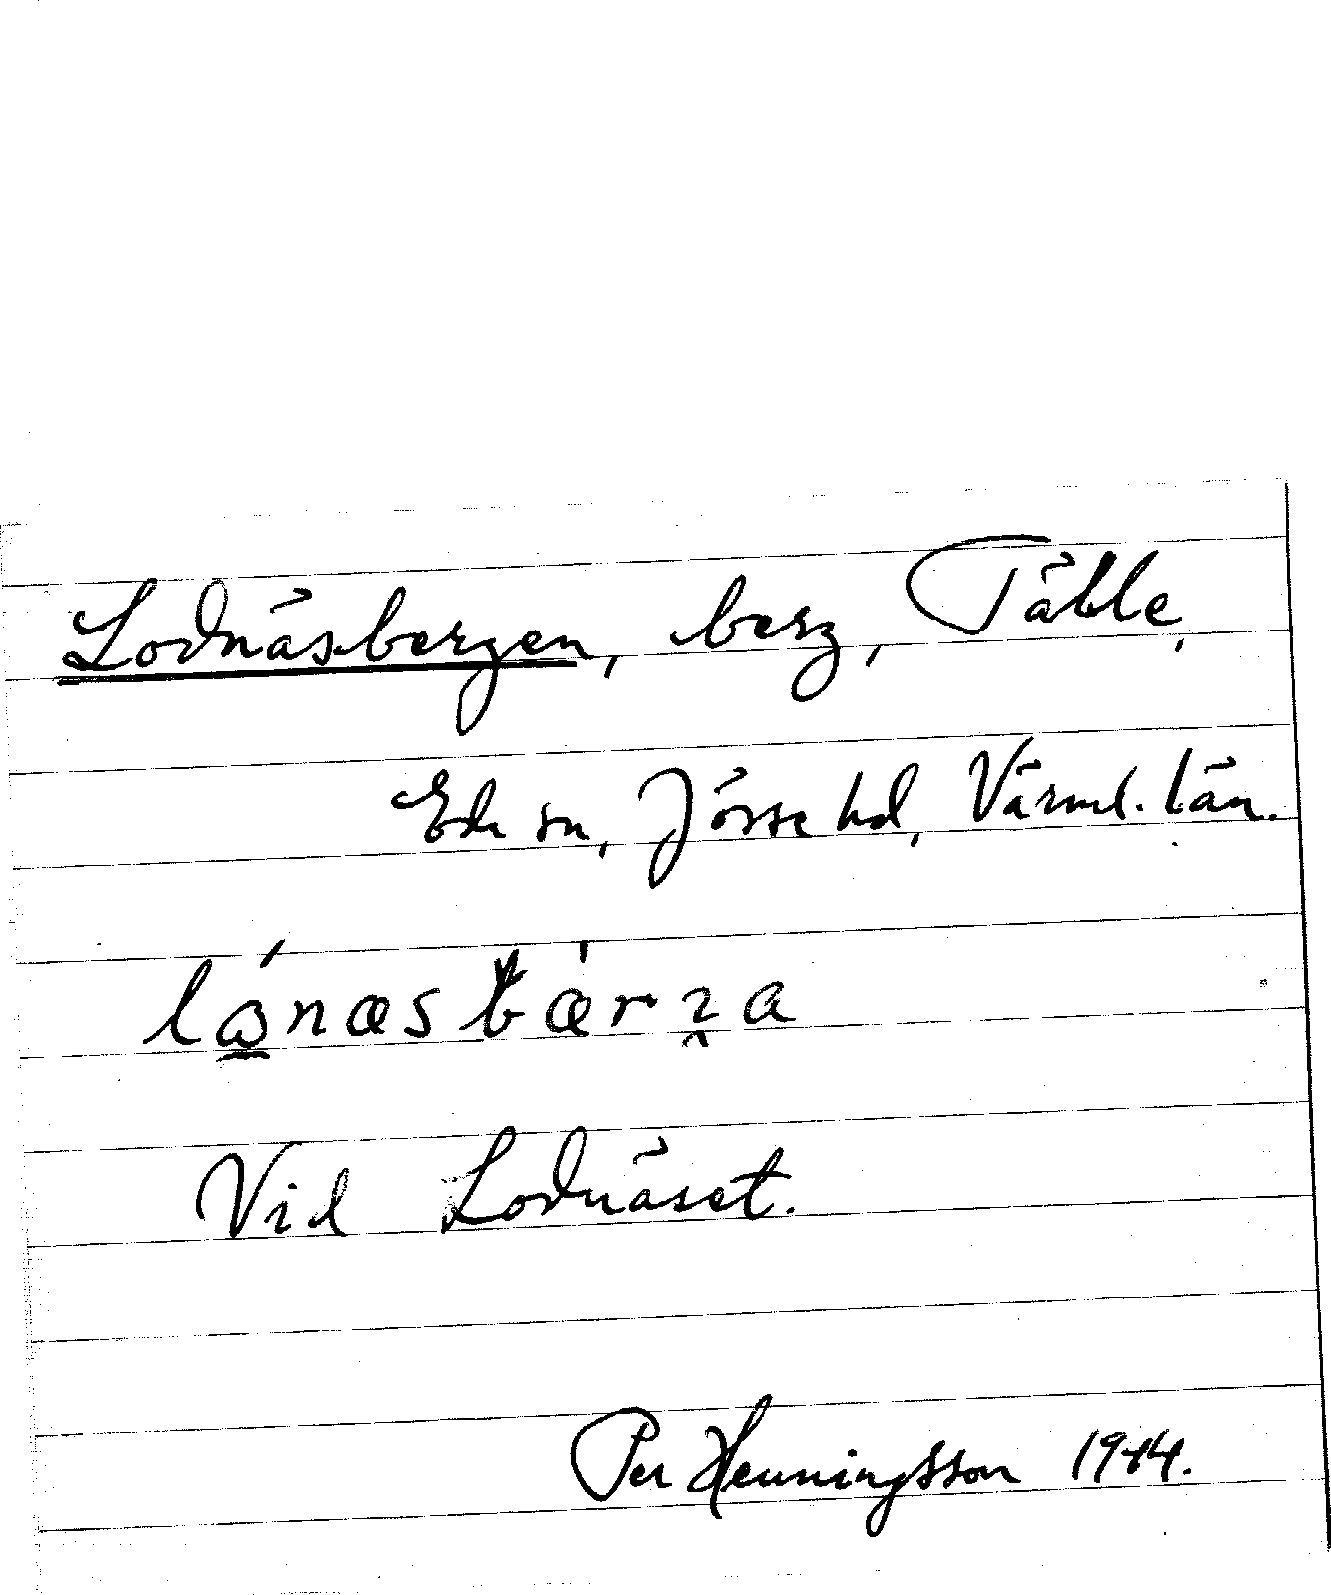 Lodnäsbergen, berg, Täble,
Eda sn, Jösse hd, Värml. län.
lånæsbærʒa
Vid Lodnäset.
Per Henningsson 1944.